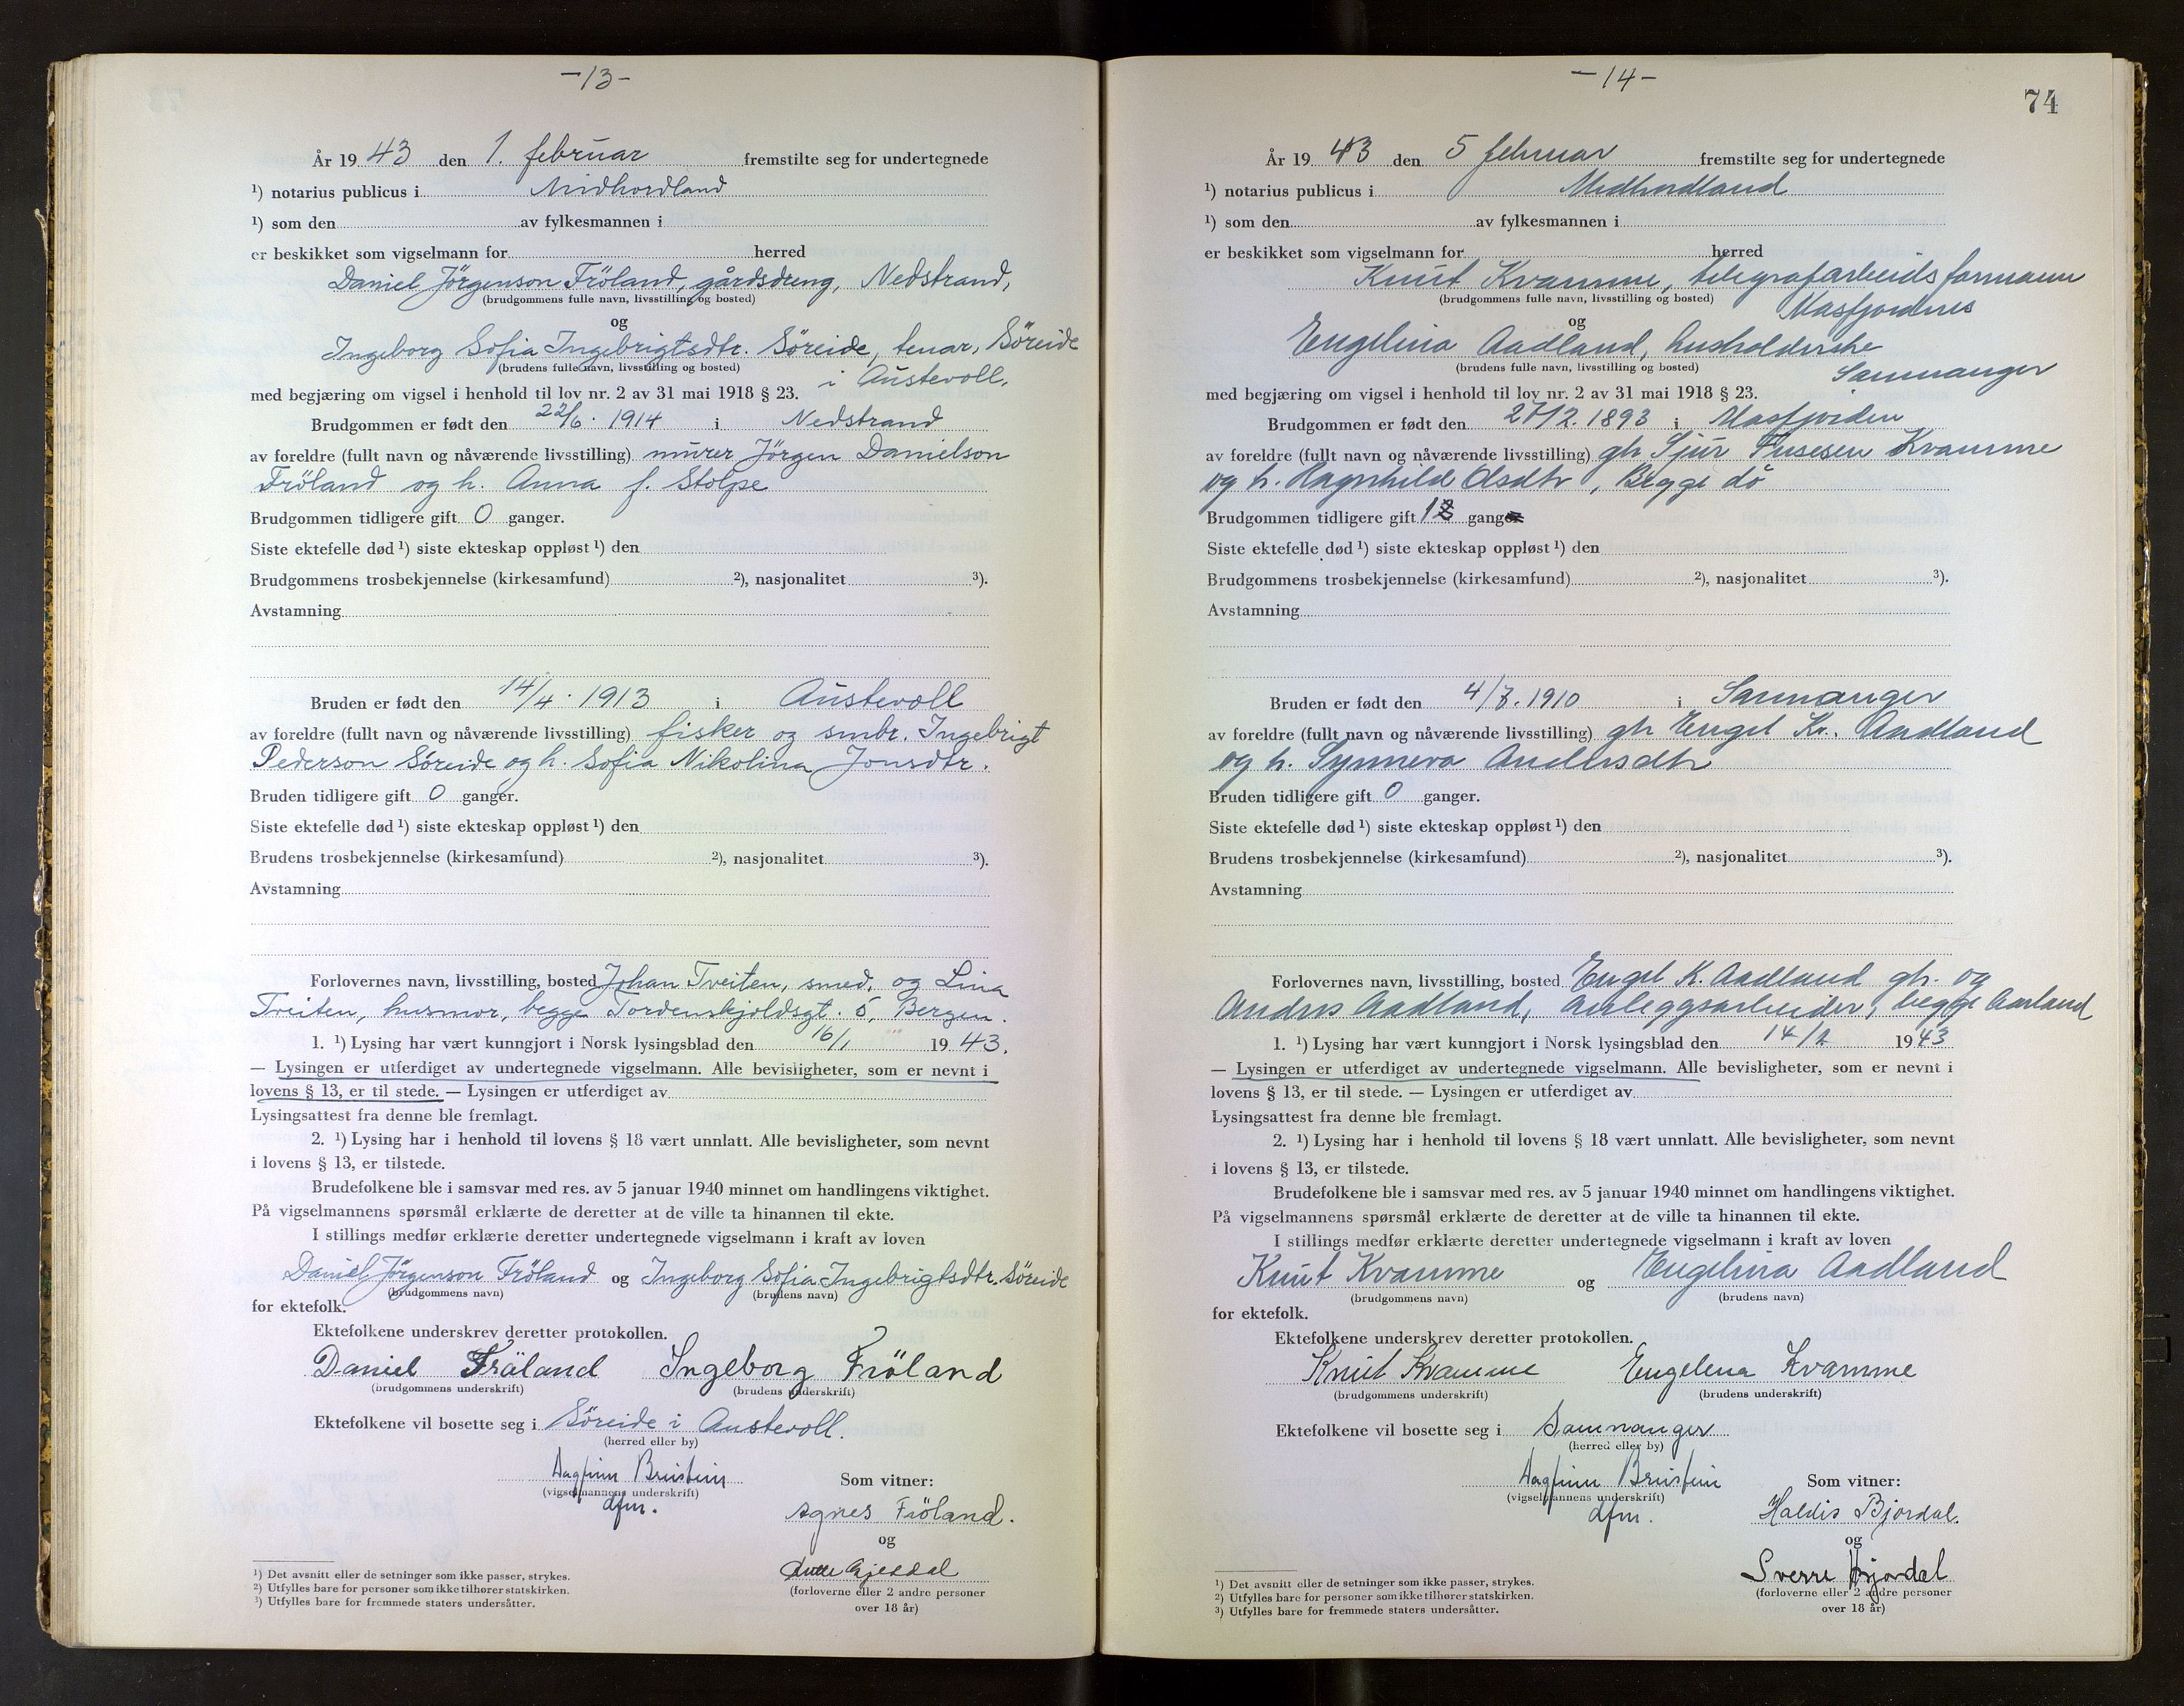 -13-
År 19 43 den 1. februar fremstilte seg for undertegnede
¹) notarius publicus i Midhordland
¹) som den av fylkesmannen i
er beskikket som vigselmann for herred
Daniel Jörgenson Fröland, gårdsdreng, Nedstrand,
(brudgommens fulle navn, livsstilling og bosted)
og
Ingeborg Sofia Ingebrigtsdtr. Söreide, tenar, Söreide
(brudens fulle navn, livsstilling og bosted)
i Austevoll.
med begjæring om vigsel i henhold til lov nr. 2 av 31 mai 1918 § 23.
Brudgommen er født den 22/6. 1914 i Nedstrand
av foreldre (fullt navn og nåværende livsstilling) murer Jörgen Danielson
Fröland og h. Anna f. Stolpe
Brudgommen tidligere gift 0 ganger.
Siste ektefelle død ¹) siste ekteskap oppløst ¹) den
Brudgommens trosbekjennelse (kirkesamfund) ²), nasjonalitet ³).
Avstamning
Bruden er født den 14/4. 1913 i Austevoll
av foreldre (fullt navn og nåværende livsstilling) fisker og smbr. Ingebrigt
Pederson Söreide og h. Sofia Nikolina Jonsdtr.
Bruden tidligere gift 0 ganger.
Siste ektefelle død ¹) siste ekteskap oppløst ¹) den
Brudens trosbekjennelse (kirkesamfund) ²), nasjonalitet ³).
Avstamning
Forlovernes navn, livsstilling, bosted Johan Tveiten, smed, og Lina
Tveiten, husmor, begge Tordenskjoldsgt. 5, Bergen.
1. ¹) Lysing har vært kunngjort i Norsk lysingsblad den 16/1 19 43.
— Lysingen er utferdiget av undertegnede vigselmann. Alle bevisligheter, som er nevnt i
lovens § 13, er til stede. — Lysingen er utferdiget av
Lysingsattest fra denne ble fremlagt.
2. ¹) Lysing har i henhold til lovens § 18 vært unnlatt. Alle bevisligheter, som nevnt
i lovens § 13, er tilstede.
Brudefolkene ble i samsvar med res. av 5 januar 1940 minnet om handlingens viktighet.
På vigselmannens spørsmål erklærte de deretter at de ville ta hinannen til ekte.
I stillings medfør erklærte deretter undertegnede vigselmann i kraft av loven
Daniel Jörgenson Fröland og Ingeborg Sofia Ingebrigtsdtr. Söreide
(brudgommens navn) (brudens navn)
for ektefolk.
Ektefolkene underskrev deretter protokollen.
Daniel Fröland Ingeborg Fröland
(brudgommens underskrift) (brudens underskrift)
Ektefolkene vil bosette seg i Söreide i Austevoll.
(herred eller by)
Dagfinn Brustein
(vigselmannens underskrift)
dfm.
Som vitner:
Agnes Fröland.
og
Gjesdal
(forloverne eller 2 andre personer
over 18 år)
¹) Det avsnitt eller de setninger som ikke passer, strykes.
²) Utfylles bare for personer som ikke tilhører statskirken.
³) Utfylles bare for fremmede staters undersåtter.
-14-
74
År 19 43 den 5 februar fremstilte seg for undertegnede
¹) notarius publicus i Midhordland
¹) som den av fylkesmannen i
er beskikket som vigselmann for herred
Knut Kvamme, telegrafarbeidsformann
(brudgommens fulle navn, livsstilling og bosted)
Masfjordnes
og
Engelina Aadland, husholderske
(brudens fulle navn, livsstilling og bosted)
Samnanger
med begjæring om vigsel i henhold til lov nr. 2 av 31 mai 1918 § 23.
Brudgommen er født den 27/12. 1893 i Masfjorden
av foreldre (fullt navn og nåværende livsstilling) gb Sjur Kvamme
og h. Ragnhild Olsdtr, Begge dö
Brudgommen tidligere gift 1 gang
Siste ektefelle død ¹) siste ekteskap oppløst ¹) den
Brudgommens trosbekjennelse (kirkesamfund) ²), nasjonalitet ³).
Avstamning
Bruden er født den 4/7. 1910 i Samnanger
av foreldre (fullt navn og nåværende livsstilling) gb Engel Kr. Aadland
og h. Synneva Andersdtr
Bruden tidligere gift 0 ganger.
Siste ektefelle død ¹) siste ekteskap oppløst ¹) den
Brudens trosbekjennelse (kirkesamfund) ²), nasjonalitet ³).
Avstamning
Forlovernes navn, livsstilling, bosted Engel K. Aadland gb. og
Andres Aadland, anleggsarbeider, begge Aarland
1. ¹) Lysing har vært kunngjort i Norsk lysingsblad den 14/2 19 43
— Lysingen er utferdiget av undertegnede vigselmann. Alle bevisligheter, som er nevnt i
lovens § 13, er til stede. — Lysingen er utferdiget av
Lysingsattest fra denne ble fremlagt.
2. ¹) Lysing har i henhold til lovens § 18 vært unnlatt. Alle bevisligheter, som nevnt
i lovens § 13, er tilstede.
Brudefolkene ble i samsvar med res. av 5 januar 1940 minnet om handlingens viktighet.
På vigselmannens spørsmål erklærte de deretter at de ville ta hinannen til ekte.
I stillings medfør erklærte deretter undertegnede vigselmann i kraft av loven
Knut Kvamme og Engelina Aadland
(brudgommens navn) (brudens navn)
for ektefolk.
Ektefolkene underskrev deretter protokollen.
Knut Kvamme Engelena Kvamme
(brudgommens underskrift) (brudens underskrift)
Ektefolkene vil bosette seg i Samnanger
(herred eller by)
Dagfinn Brustein
(vigselmannens underskrift)
dfm.
Som vitner:
Haldis Bjordal.
og
Sverre Bjordal
(forloverne eller 2 andre personer
over 18 år)
¹) Det avsnitt eller de setninger som ikke passer, strykes.
²) Utfylles bare for personer som ikke tilhører statskirken.
³) Utfylles bare for fremmede staters undersåtter.